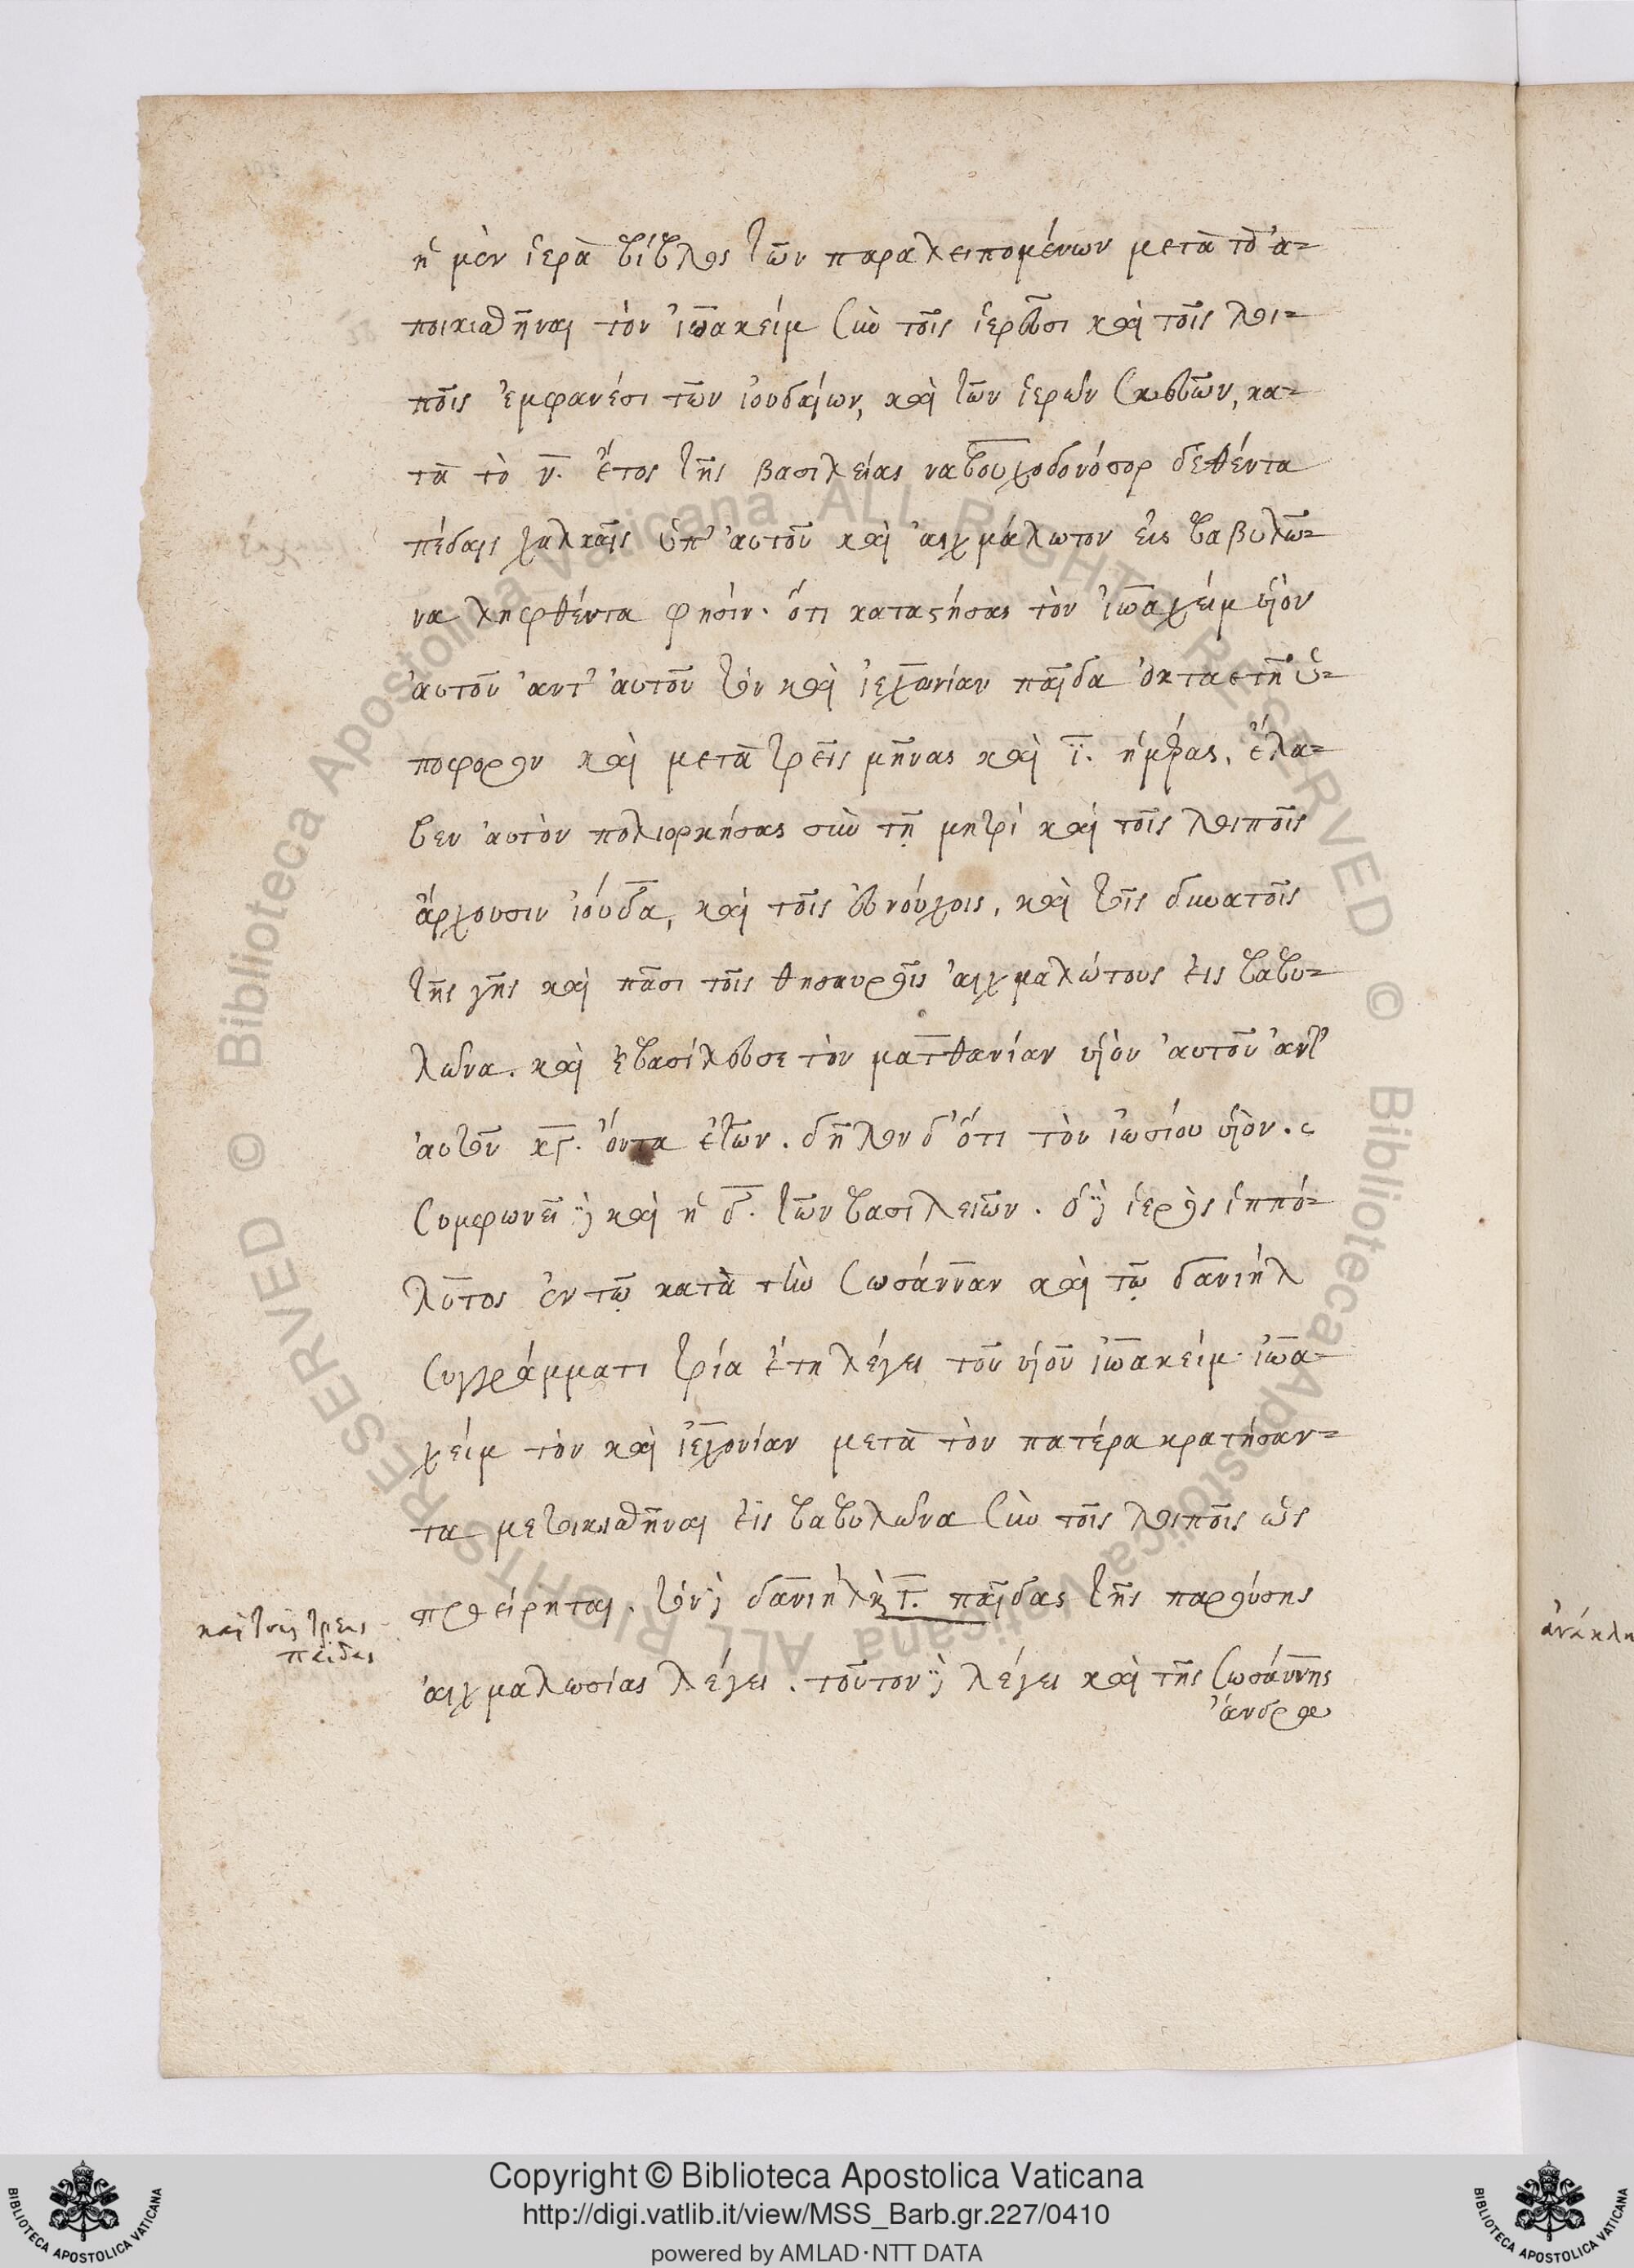 ἡ μὲν ἱερὰ βίβλος τῶν παραλειπομένων μετὰ τὸ ἀ=
ποικισθῆναι τὸν ἰωακεὶμ σὺν τοῖς ἱερεῦσι καὶ τοῖς λοι=
ποῖς ἐμφανέσι τῶν ἰουδαίων, καὶ τῶν ἱερῶν σκευῶν, κα=
τὰ τὸ ν. ἔτος τῆς βασιλείας ναβουχοδονόσορ δεθέντα
πέδαις χαλκαῖς ὑπ' αὐτοῦ καὶ αἰχμάλωτον εἰς βαβυλῶ=
να ληφθέντα φησίν· ὅτι καταστήσας τὸν ἰωαχεὶμ υἱὸν
αὐτοῦ ἀντ' αὐτοῦ τὸν καὶ ἰεχωνίαν παῖδα ὀκταετῆ ὑ=
πόφορον καὶ μετὰ τρεῖς μῆνας καὶ ϊ. ἡμέρας, ἔλα=
βεν αὐτὸν πολιορκήσας σὺν τῇ μητρὶ καὶ τοῖς λοιποῖς
ἄρχουσιν ἰούδα, καὶ τοῖς εὐνούχοις, καὶ τοῖς δυνατοῖς
τῆς γῆς καὶ πᾶσι τοῖς θησαυροῖς αἰχμαλώτους εἰς βαβυ=
λῶνα. καὶ ἐβασίλευσε τὸν ματθανίαν υἱὸν αὐτοῦ ἀντ'
αὐτοῦ κγ. ὄντα ἐτῶν. δῆλον δ' ὅτι τὸν ἰωσίου υἱόν.
συμφωνεῖ δὲ καὶ ἡ δ. τῶν βασιλειῶν. ὁ δὲ ἱερὸς ἱππό=
λυτος ἐν τῷ κατὰ τὴν σωσάνναν καὶ τῷ δανιὴλ
συγγράμματι τρία ἔτη λέγει τοῦ υἱοῦ ἰωακεὶμ ἰωα=
χεὶμ τὸν καὶ ἰεχονίαν μετὰ τὸν πατέρα κρατήσαν=
τα μετοικισθῆναι εἰς βαβυλῶνα σὺν τοῖς λοιποῖς ὡς
προείρηται. τὸν δὲ δανιὴλ καὶ γ. παῖδας τῆς παρούσης
αἰχμαλωσίας λέγει. τοῦτον δὲ λέγει καὶ τῆς σωσάννης
ἄνδρα
καὶ τοὺς τρεῖς
παῖδας
Copyright © Biblioteca Apostolica Vaticana
http://digi.vatlib.it/view/MSS_Barb.gr.227/0410
powered by AMLAD·NTT DATA
BIBLIOTECA APOSTOLICA VATICANA
BIBLIOTECA APOSTOLICA VATICANA
© Biblioteca Apostolica Vaticana ALL RIGHTS RESERVED
© Biblioteca Apostolica Vaticana ALL RIGHTS RESERVED